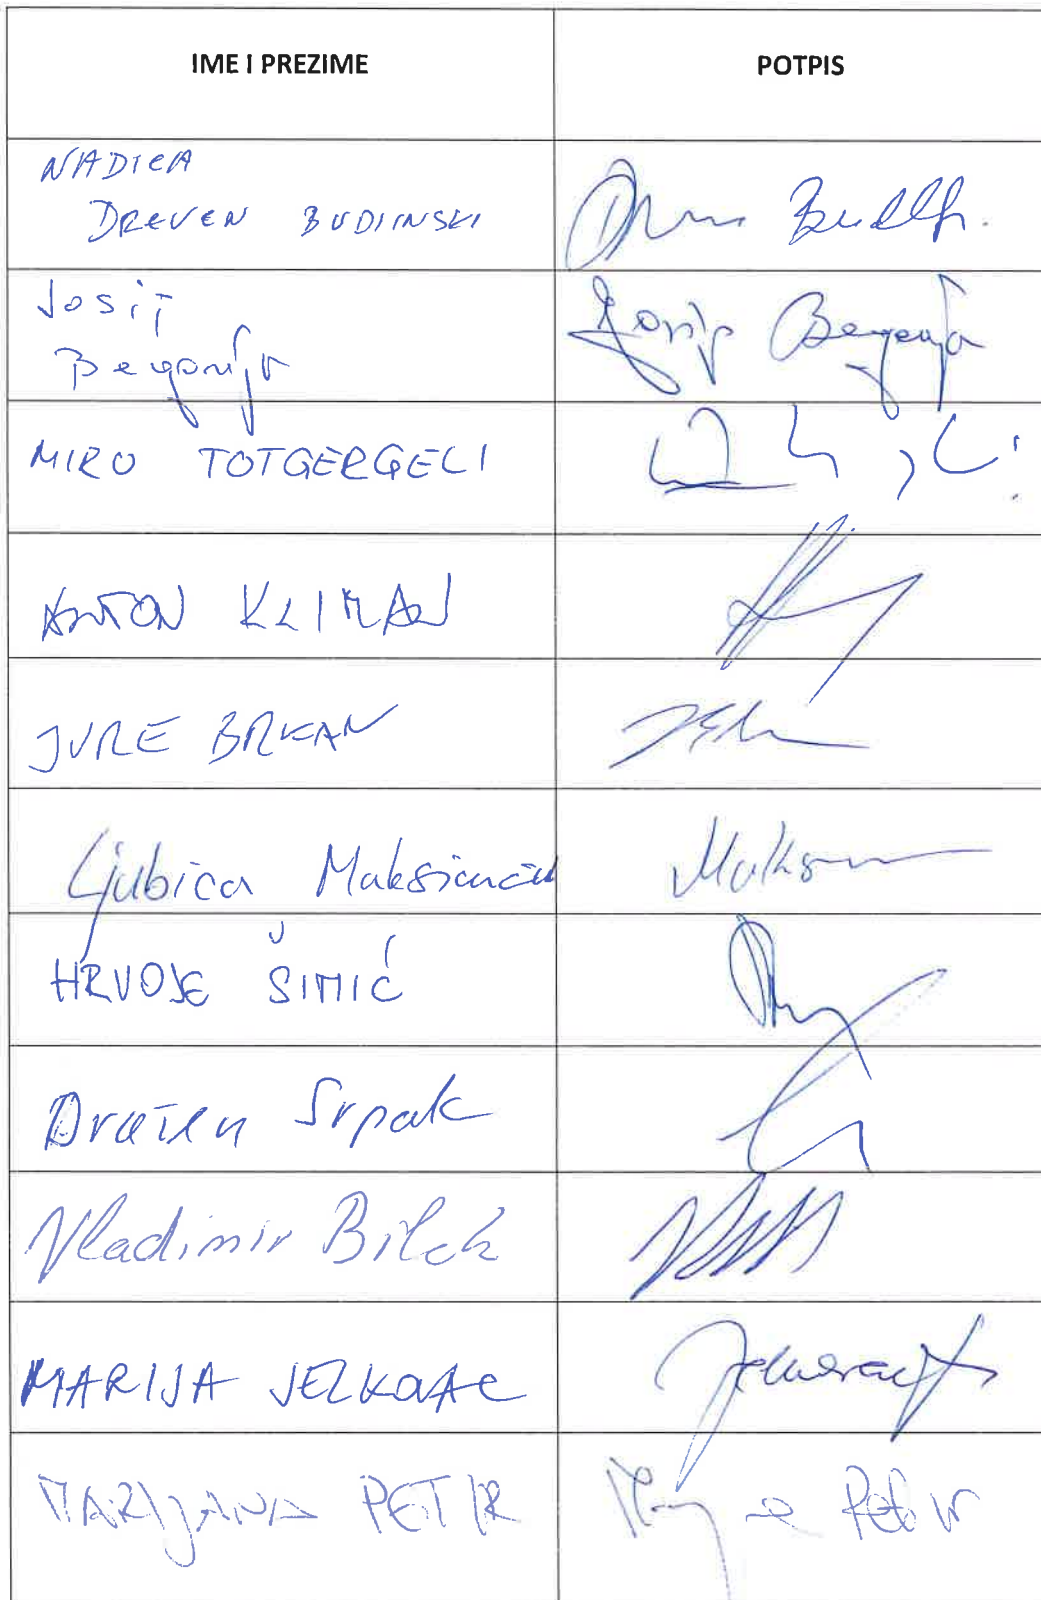 IME I PREZIME POTPIS
NADICA
DREVEN BUDINSKI
Josip
Begonja Josip Begonja
MIRO TOTGERGELI
ANTON KLIMAN
JURE BRKAN
Ljubica Maksimčuk Maksim
HRVOJE ŠIMIĆ
Dražen Srpak
Vladimir Bilek
MARIJA JELKOVAC Jelkovac
MARIJANA PETIR Petir